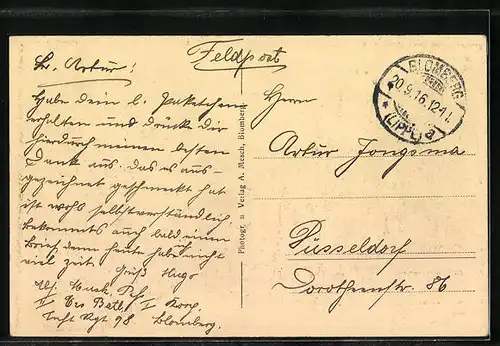 Feldpost
Lb. Artur!
Habe dein l. Paketchen
erhalten und drücke dir
hierdurch meinen besten
Dank aus. das es aus-
gezeichnet geschmeckt hat
ist wohl selbstverständlich.
bekommst auch bald einen
Brief denn heute habe nicht
viel Zeit. Gruß Hugo
Abs. Musk.
II Ers Batl. I Korp.
Inft Rgt 98. Blomberg.
Photogr. u. Verlag A. Mesch, Blomberg.
BLOMBERG
20.9.16.12-1 N.
* (LIPPE) a
Herrn
Artur Jongsma
Düsseldorf
Dorotheenstr. 86